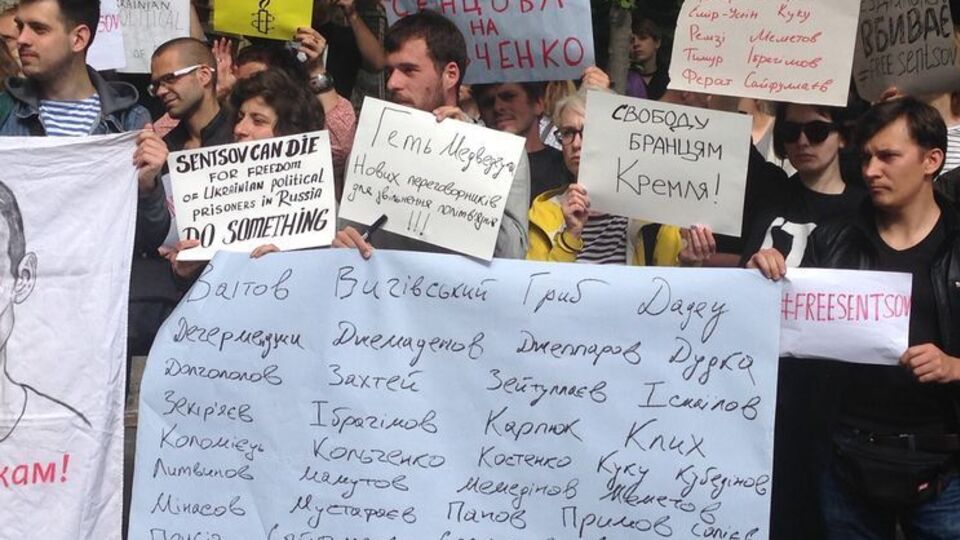 UKRAINIAN
POLITICAL
СЕНЦОВА
НА
Емір-Усеїн Куку
Ремзі Меметов
Тимур Ібрагімов
Ферат Сайфулаєв
ВБИВАЄ
#FREE SENTSOV
SENTSOV CAN DIE
FOR FREEDOM
OF UKRAINIAN POLITICAL
PRISONERS IN RUSSIA
DO SOMETHING
Геть Медведчука
Нових переговорників
для звільнення політв'язнів
!!!
СВОБОДУ
БРАНЦЯМ
Кремля!
#FREESENTSOV
Ваїтов Вигівський Гриб Дадеу
Дегермеджи Джемаденов Джеппаров Дудка
Долгополов Захтей Зейтуллаєв Ісмаілов
Зекір'яєв Ібрагімов Карпюк Клих
Коломієць Кольченко Костенко Куку Кубедінов
Литвинов Мамутов Мемедінов Меметов
Мінасов Мустафаєв Панов Примов
кам!